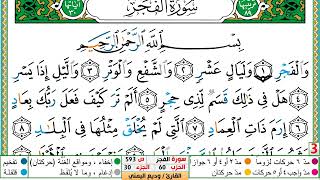 سُورَةُ الفَجْرِ
بِسْمِ اللَّهِ الرَّحْمَٰنِ الرَّحِيمِ
وَالْفَجْرِ ۝١ وَلَيَالٍ عَشْرٍ ۝٢ وَالشَّفْعِ وَالْوَتْرِ ۝٣ وَاللَّيْلِ إِذَا يَسْرِ
۝٤ هَلْ فِي ذَٰلِكَ قَسَمٌ لِّذِي حِجْرٍ ۝٥ أَلَمْ تَرَ كَيْفَ فَعَلَ رَبُّكَ بِعَادٍ
۝٦ إِرَمَ ذَاتِ الْعِمَادِ ۝٧ الَّتِي لَمْ يُخْلَقْ مِثْلُهَا فِي الْبِلَادِ
3
مدّ ٦ حركات لزوماً
مدّ ٢ أو ٤ أو ٦ جوازاً
إخفاء، ومواقع الغُنَّة (حركتان)
تفخيم
مدّ حركتان
قلقلة
سورة الفجر
ص 593
الحزب 60
الجزء 30
القارئ / وديع اليمني